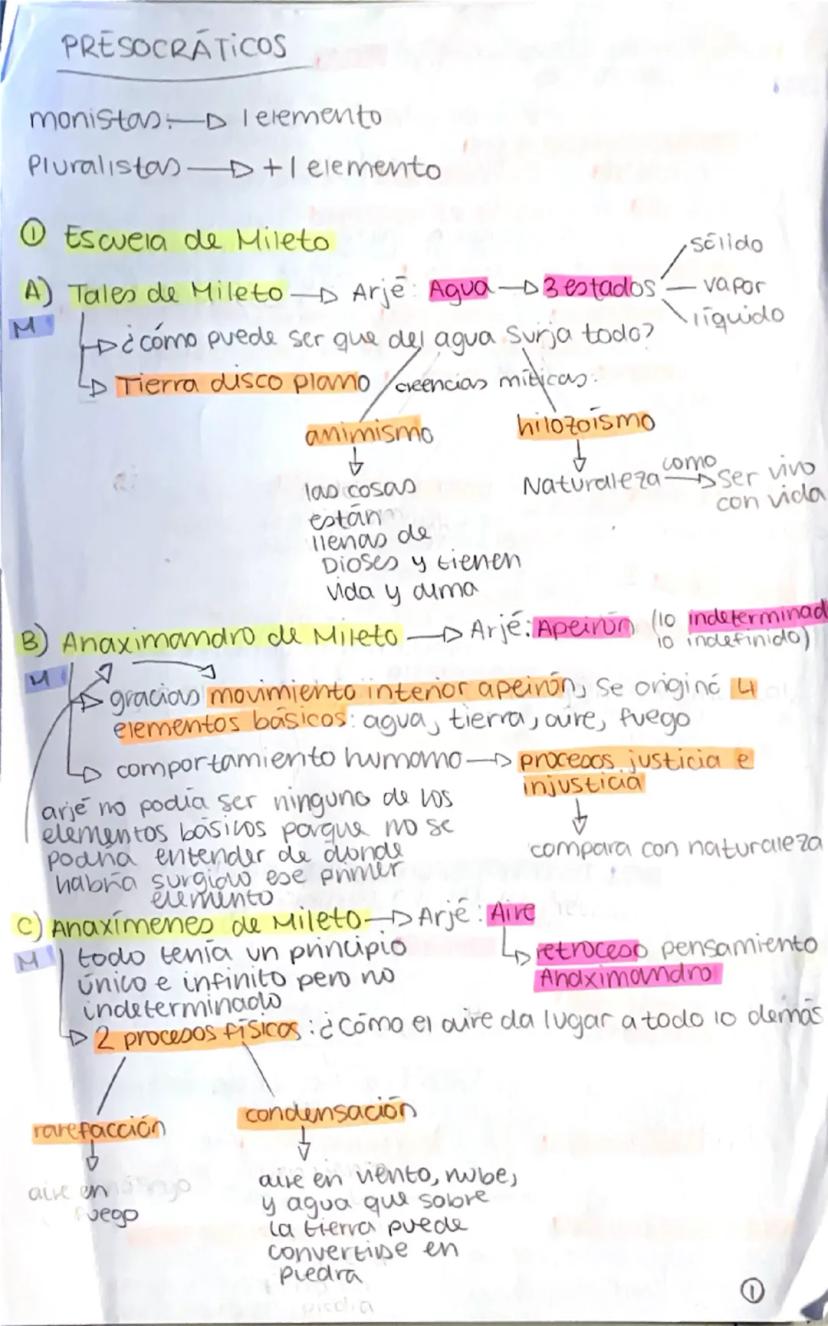 PRESOCRÁTICOS
monistas: → 1 elemento
Pluralistas → +1 elemento
① Escuela de Mileto
A) Tales de Mileto → Arjé: Agua → 3 estados
sólido
vapor
líquido
M
→ ¿cómo puede ser que del agua surja todo?
→ Tierra disco plano
creencias míticas:
animismo
las cosas
están
llenas de
Dioses y tienen
vida y alma
hilozoísmo
Naturaleza como → Ser vivo
con vida
B) Anaximandro de Mileto → Arjé: Apeirón (lo indeterminad
lo indefinido)
M
→ gracias movimiento interior apeirón, se originó 4
elementos básicos: agua, tierra, aire, fuego
→ comportamiento humano → procesos justicia e
injusticia
compara con naturaleza
arjé no podía ser ninguno de los
elementos básicos porque no se
podría entender de donde
habría surgido ese primer
elemento
C) Anaxímenes de Mileto → Arjé: Aire
→ retroceso pensamiento
Anaximandro
M
todo tenía un principio
único e infinito pero no
indeterminado
→ 2 procesos físicos: ¿cómo el aire da lugar a todo lo demás
rarefacción
aire en
fuego
condensación
aire en viento, nube,
y agua que sobre
la tierra puede
convertirse en
piedra
①